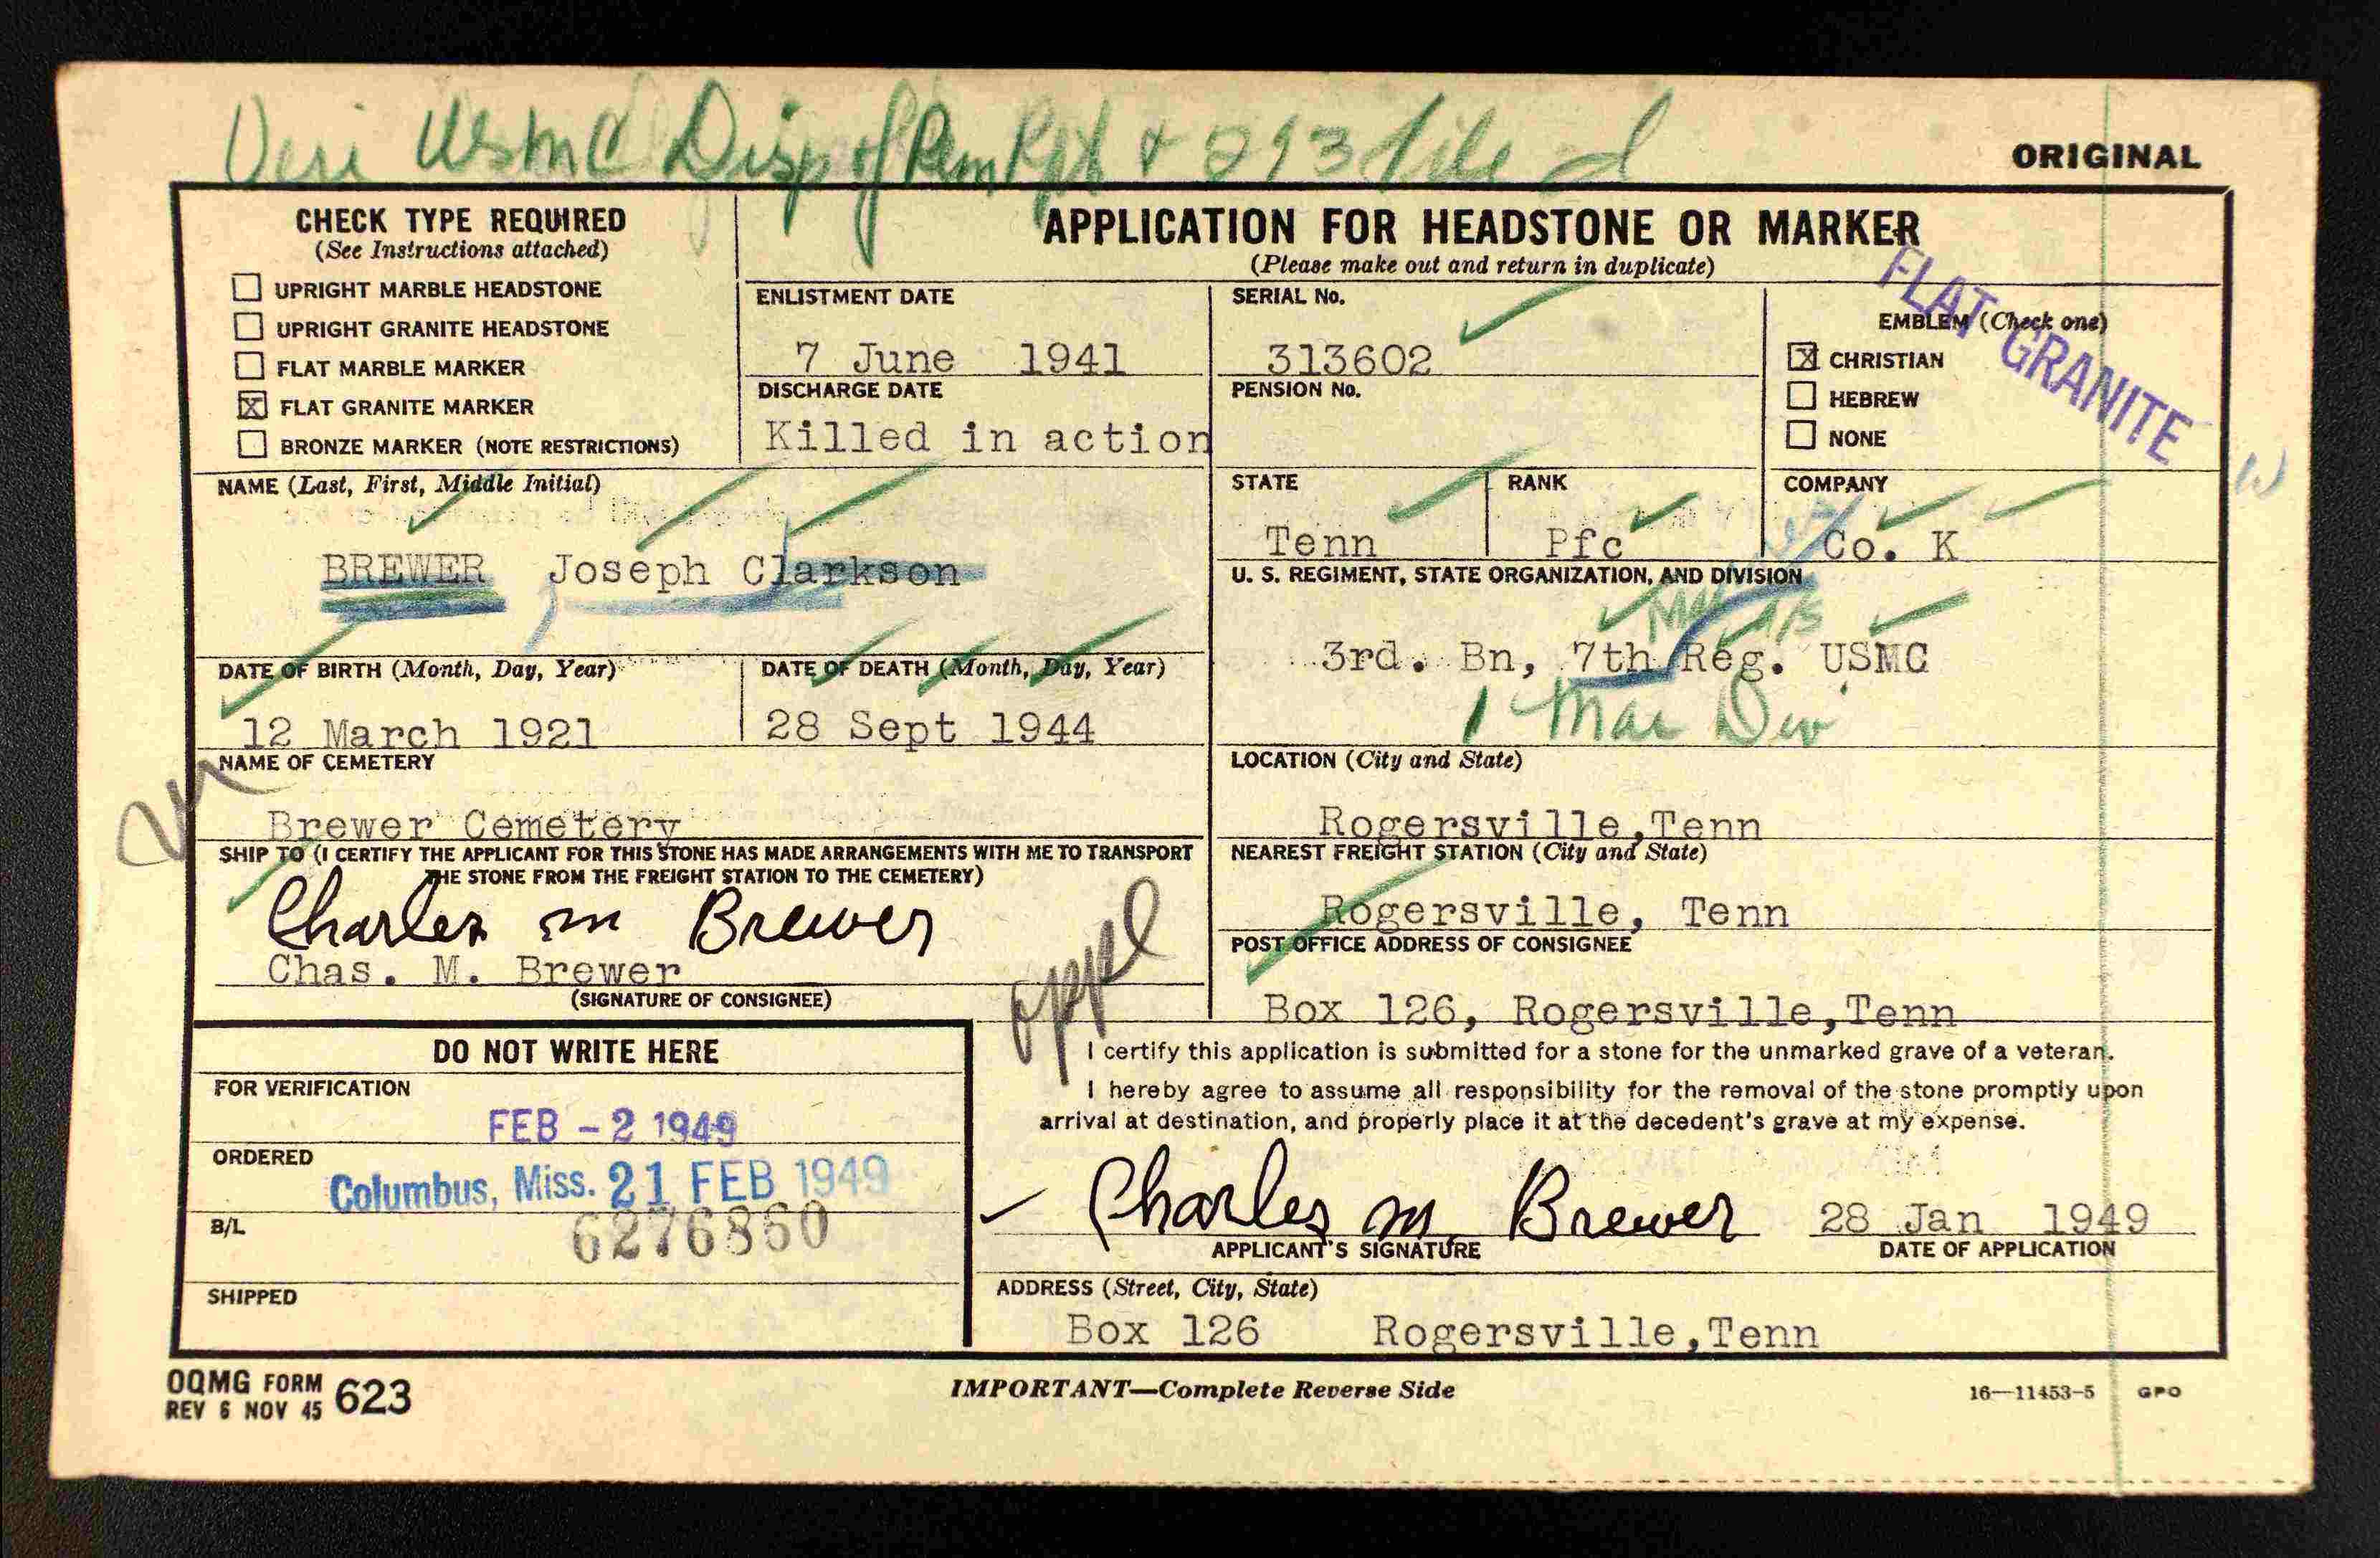 Veri USMC Disp of Rem Rpt & 293 file
ORIGINAL
CHECK TYPE REQUIRED
(See Instructions attached)
☐ UPRIGHT MARBLE HEADSTONE
☐ UPRIGHT GRANITE HEADSTONE
☐ FLAT MARBLE MARKER
☒ FLAT GRANITE MARKER
☐ BRONZE MARKER (NOTE RESTRICTIONS)
APPLICATION FOR HEADSTONE OR MARKER
(Please make out and return in duplicate)
ENLISTMENT DATE
7 June 1941
DISCHARGE DATE
Killed in action
SERIAL No.
313602
PENSION No.
EMBLEM (Check one)
☒ CHRISTIAN
☐ HEBREW
☐ NONE
FLAT GRANITE
NAME (Last, First, Middle Initial)
BREWER Joseph Clarkson
STATE
Tenn
RANK
Pfc
COMPANY
Co. K
U. S. REGIMENT, STATE ORGANIZATION, AND DIVISION
Mar
3rd. Bn, 7th Reg. USMC
1 Mar Div
DATE OF BIRTH (Month, Day, Year)
12 March 1921
DATE OF DEATH (Month, Day, Year)
28 Sept 1944
NAME OF CEMETERY
Brewer Cemetery
LOCATION (City and State)
Rogersville,Tenn
SHIP TO (I CERTIFY THE APPLICANT FOR THIS STONE HAS MADE ARRANGEMENTS WITH ME TO TRANSPORT
THE STONE FROM THE FREIGHT STATION TO THE CEMETERY)
Charles M Brewer
Chas. M. Brewer
(SIGNATURE OF CONSIGNEE)
NEAREST FREIGHT STATION (City and State)
Rogersville, Tenn
POST OFFICE ADDRESS OF CONSIGNEE
Box 126, Rogersville,Tenn
appl
DO NOT WRITE HERE
FOR VERIFICATION
FEB - 2 1949
ORDERED
Columbus, Miss. 21 FEB 1949
B/L
6276860
SHIPPED
I certify this application is submitted for a stone for the unmarked grave of a veteran.
I hereby agree to assume all responsibility for the removal of the stone promptly upon
arrival at destination, and properly place it at the decedent's grave at my expense.
Charles M. Brewer
28 Jan 1949
APPLICANT'S SIGNATURE
DATE OF APPLICATION
ADDRESS (Street, City, State)
Box 126 Rogersville,Tenn
OQMG FORM 623
REV 6 NOV 45
IMPORTANT—Complete Reverse Side
16—11453-5 GPO